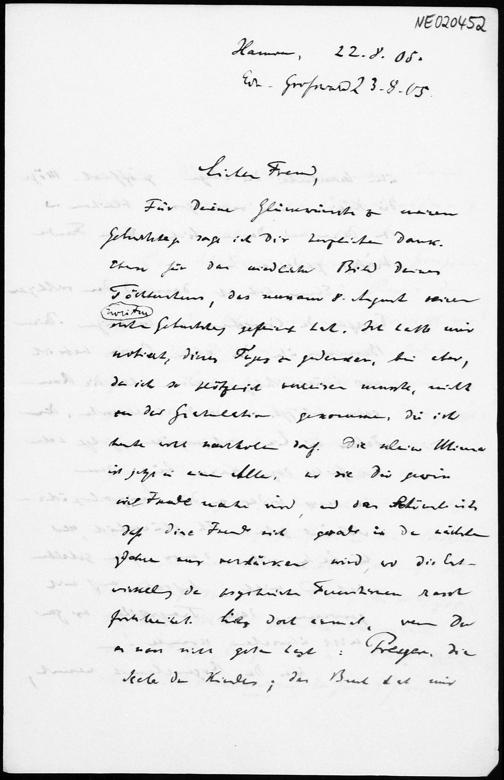 NE020452
22.8.05.
23.8.05.
Lieber Freund,
Für Deine Glückwünsche zu meinem
Geburtstage sage ich Dir herzlichen Dank.
für das niedliche Bild Deines
Töchterchens, das am 8. August seinen
zweiten
Geburtstag gefeiert hat. Ich hatte mir
notiert, dieses Tages zu gedenken, bin aber,
da ich so plötzlich verreisen musste, nicht
zu der Gratulation gekommen, die ich
heute wohl nachholen darf. Die kleine
ist jetzt in einem Alter, wo sie Dir gewiss
viel Freude machen wird, und das Schönste ist,
daß diese Freude sich gerade in den nächsten
Jahren nur verstärken wird, wo die Ent-
wicklung der psychischen Functionen rasch
fortschreitet. doch einmal, wenn Du
es noch nicht getan hast: Preyer, die
Seele des Kindes; das Buch hat mir